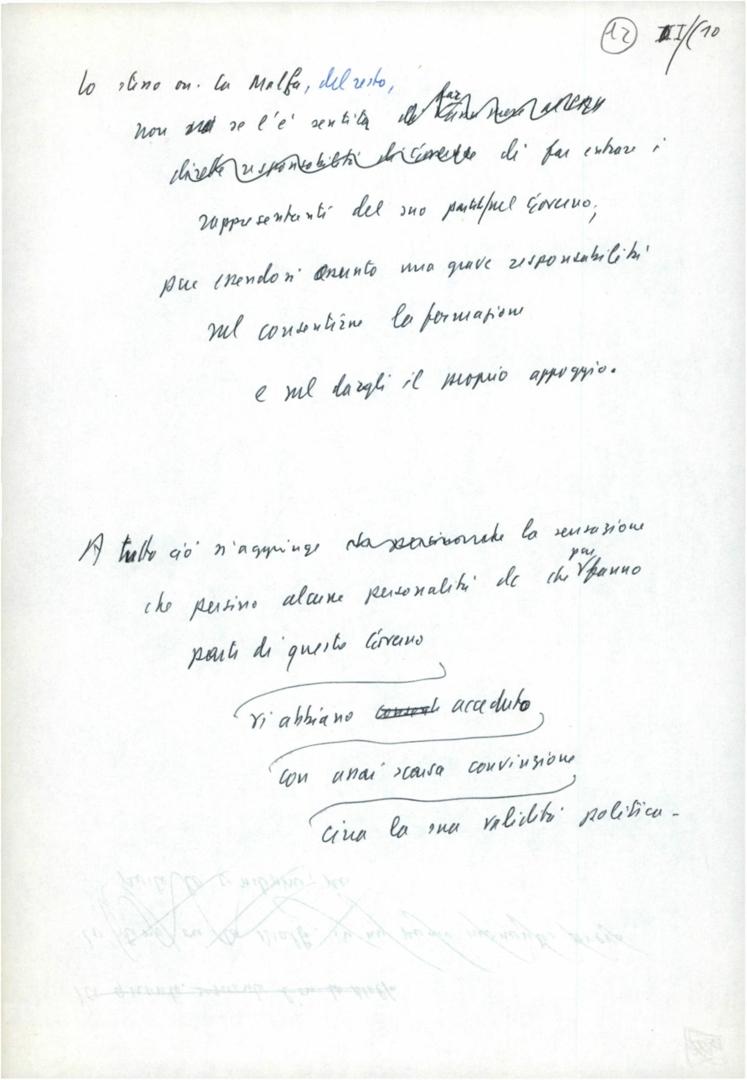 12 III/10
Lo stesso on. La Malfa, del resto,
non se l'è sentita di far
diretta responsabilità di Governo di far entrare i
rappresentanti del suo partito nel Governo,
pur essendosi assunto una grave responsabilità
nel consentirne la formazione
e nel dargli il proprio appoggio.
A tutto ciò s'aggiunge la sensazione
che persino alcune personalità dc che pur fanno
parte di questo Governo
vi abbiano consent acceduto
con assai scarsa convinzione
circa la sua validità politica -